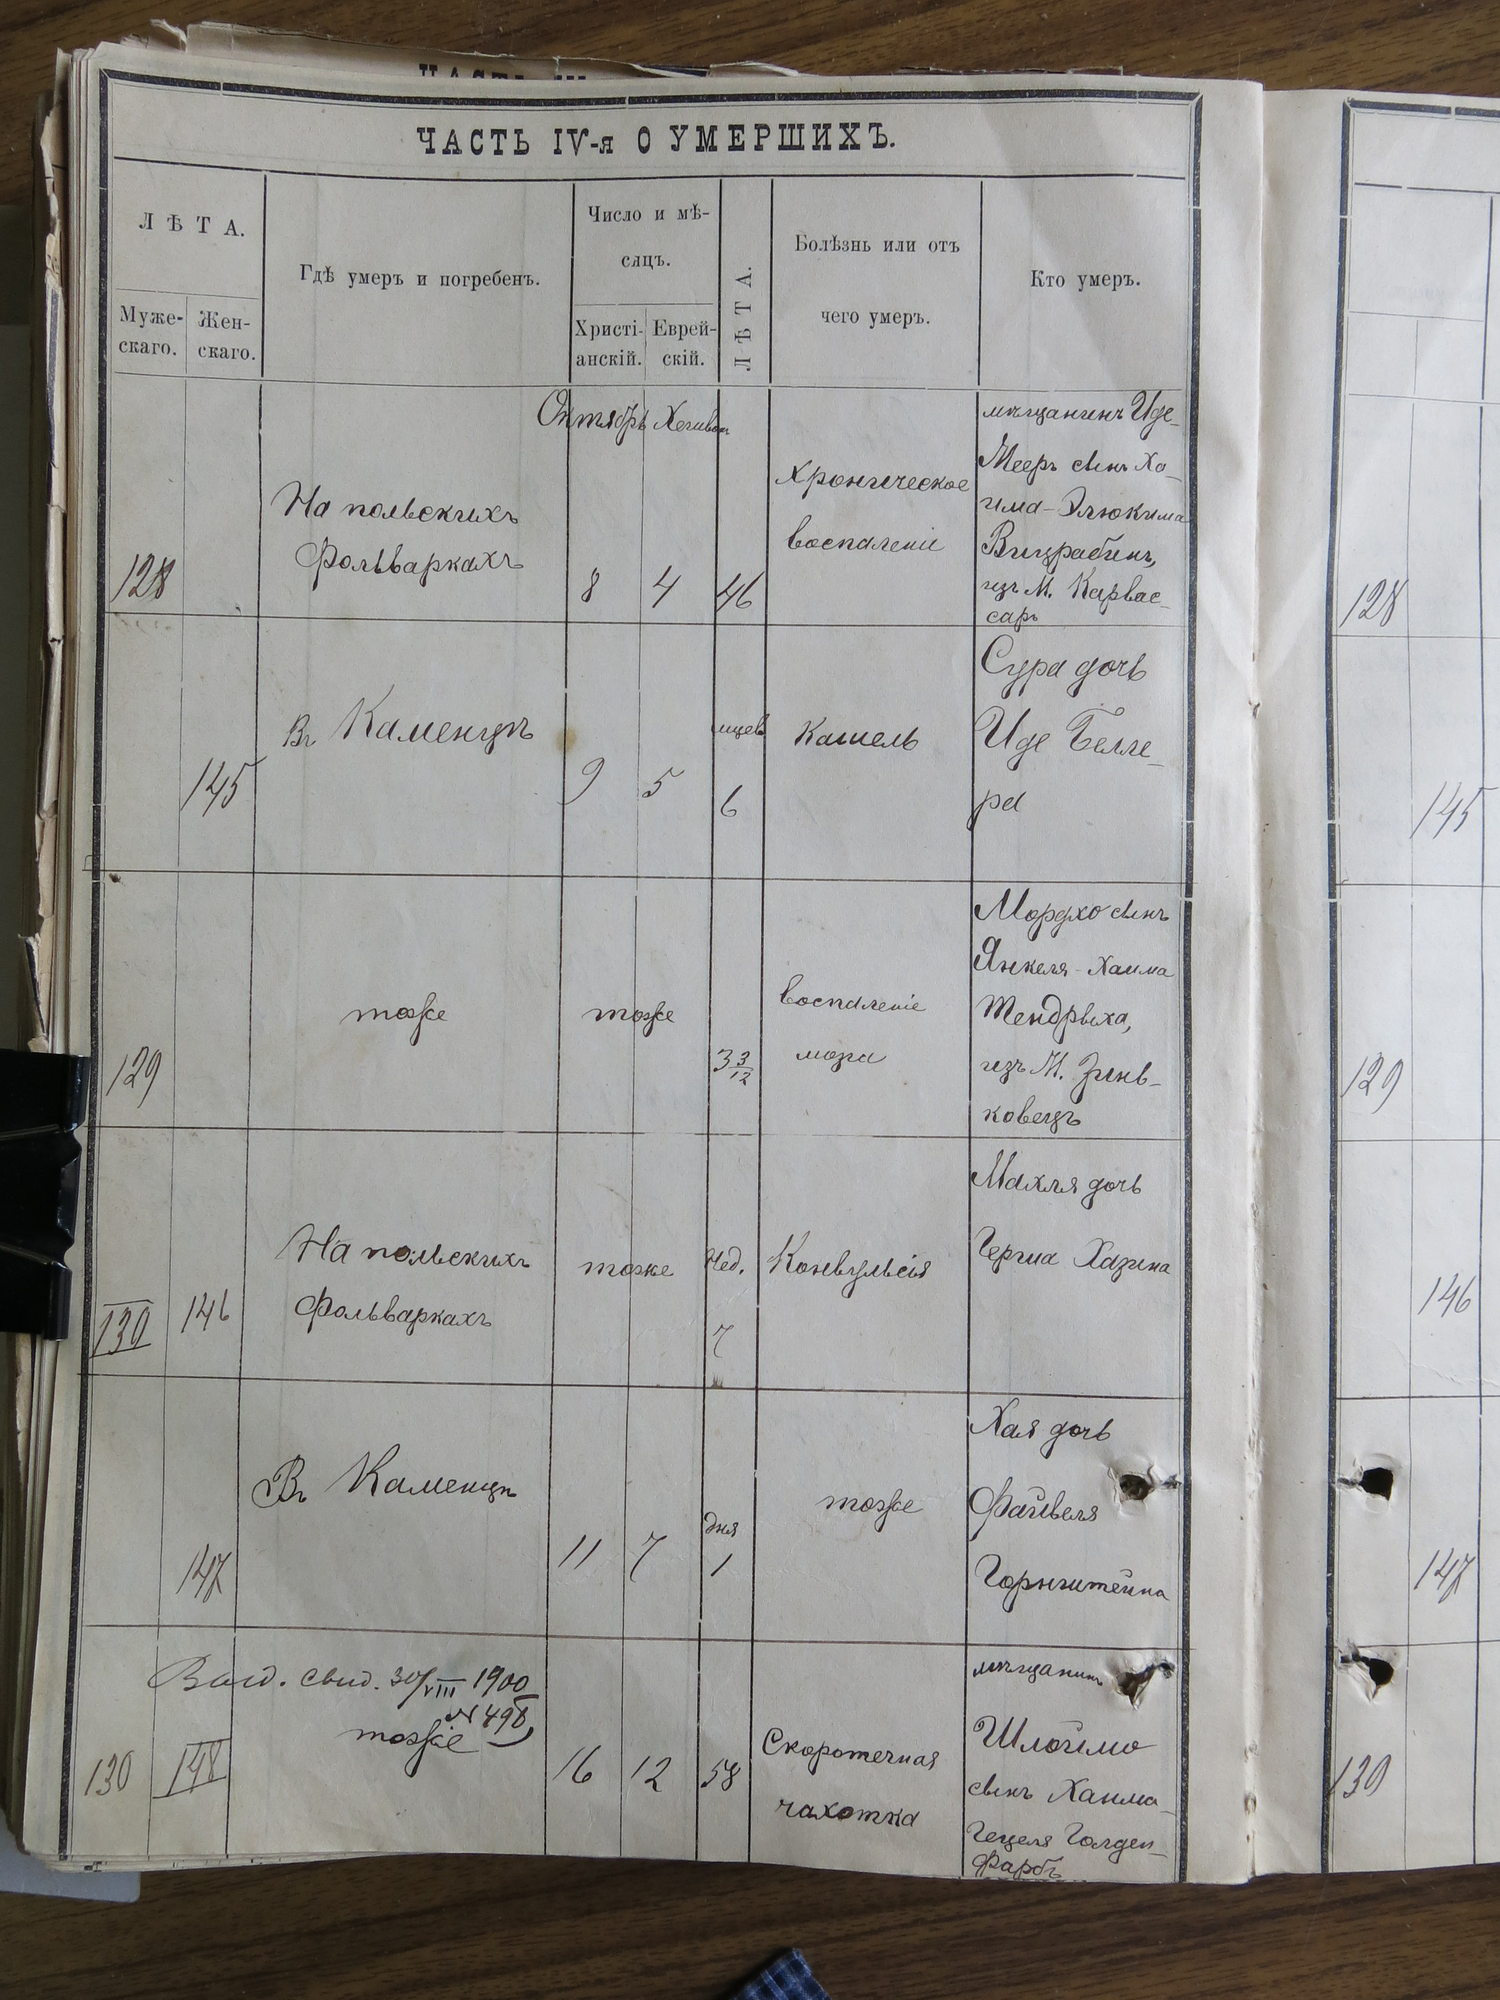 ЧАСТЬ IV-я О УМЕРШИХЪ.
ЛѢТА.
Муже-
скаго.
Жен-
скаго.
Гдѣ умеръ и погребенъ.
Число и мѣ-
сяцъ.
Христі-
анскій.
Еврей-
скій.
ЛѢТА.
Болѣзнь или отъ
чего умеръ.
Кто умеръ.
Октябрь
128
На польскихъ
фольваркахъ
8
4
46
Хроническое
воспаленіе
мѣщанинъ Иде-
Мееръ сынъ Ха-
има-Элюкима
изъ М. Карвас-
саръ
128
145
Въ Каменцѣ
9
5
мцев
6
Кашель
Сура дочь
Иде Белле-
ра
145
129
тоже
тоже
3 3/12
воспаленіе
мозга
Мордхо сынъ
Янкеля-Хаима
Тендрыха,
изъ М. Зинь-
ковецъ
129
130
146
На польскихъ
фольваркахъ
тоже
Нед.
7
Конвульсія
Махля дочь
Герша Хазина
146
147
Въ Каменцѣ
11
7
дня
1
тоже
Хая дочь
Файвеля
Горнштейна
147
Выд. свид. 30/VIII 1900
№ 498
130
148
тоже
16
12
58
Скоротечная
чахотка
мѣщанинъ
Шлоймо
сынъ Хаима-
Гецеля Голден-
фарбъ
130